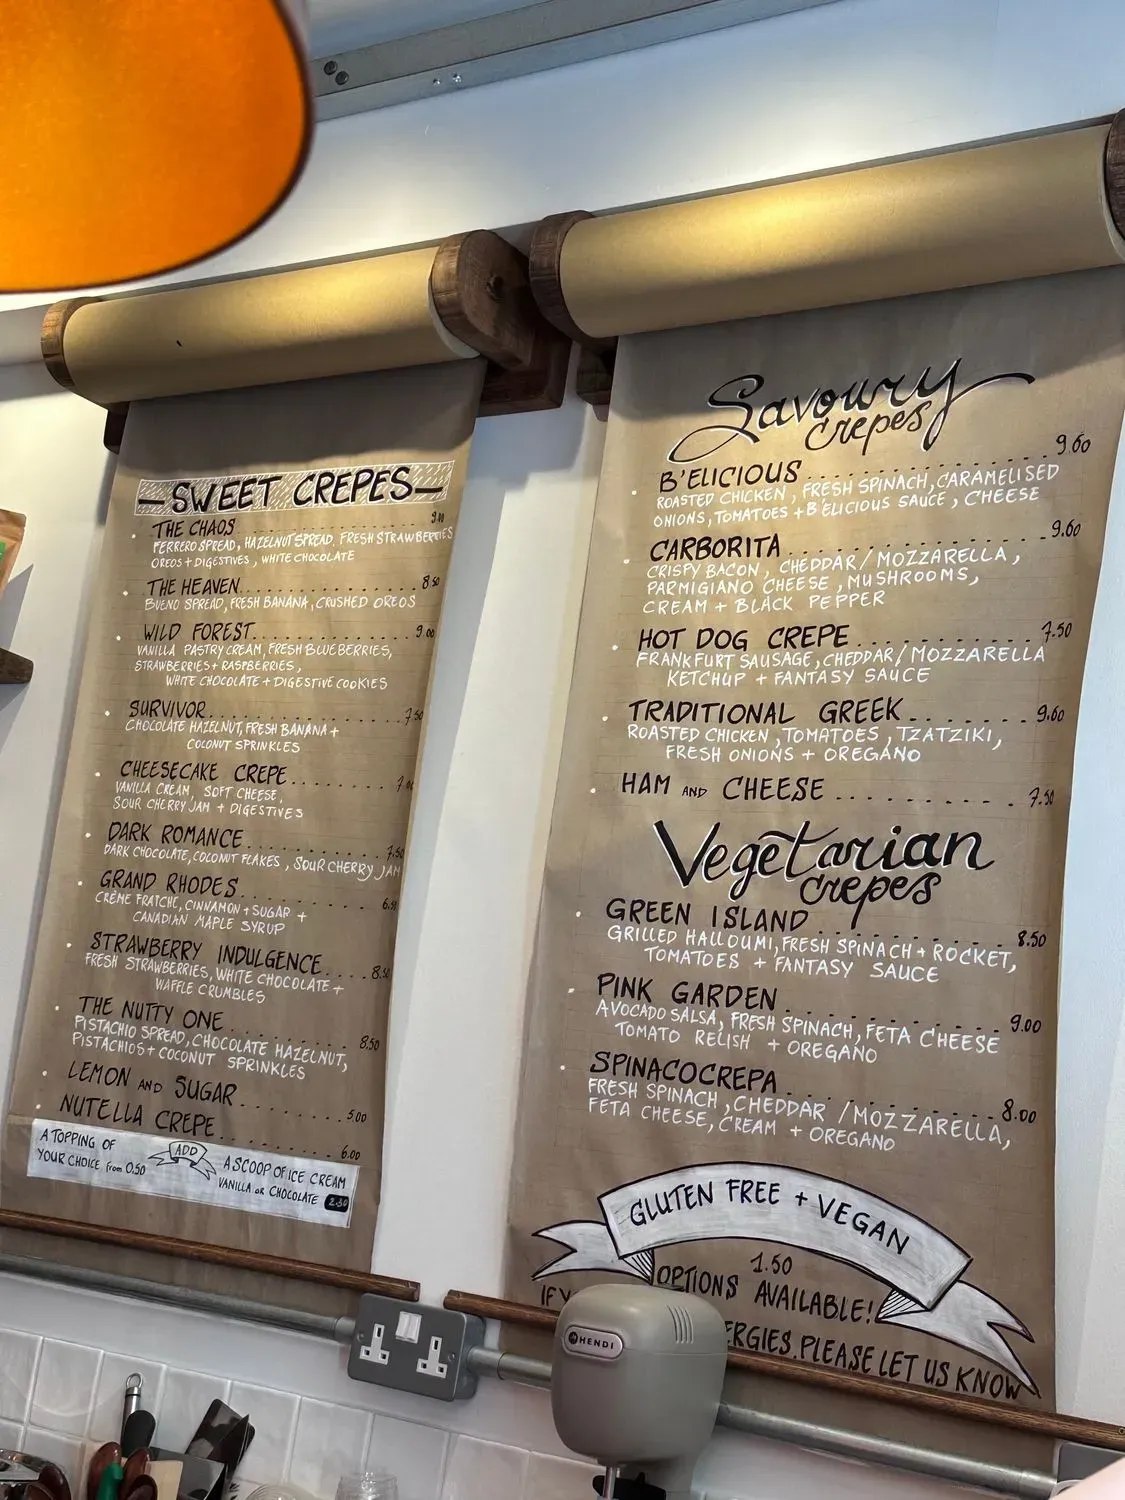 SWEET CREPES
THE CHAOS
FERRERO SPREAD, HAZELNUT SPREAD, FRESH STRAWBERRIES
OREOS + DIGESTIVES, WHITE CHOCOLATE
THE HEAVEN 8.50
BUENO SPREAD, FRESH BANANA, CRUSHED OREOS
WILD FOREST 9.00
VANILLA PASTRY CREAM, FRESH BLUEBERRIES,
STRAWBERRIES + RASPBERRIES,
WHITE CHOCOLATE + DIGESTIVE COOKIES
SURVIVOR 7.50
CHOCOLATE HAZELNUT, FRESH BANANA +
COCONUT SPRINKLES
CHEESECAKE CREPE
VANILLA CREAM, SOFT CHEESE,
SOUR CHERRY JAM + DIGESTIVES
DARK ROMANCE 7.50
DARK CHOCOLATE, COCONUT FLAKES, SOUR CHERRY JAM
GRAND RHODES
CRÈME FRAICHE, CINNAMON + SUGAR +
CANADIAN MAPLE SYRUP
STRAWBERRY INDULGENCE
FRESH STRAWBERRIES, WHITE CHOCOLATE +
WAFFLE CRUMBLES
THE NUTTY ONE 8.50
PISTACHIO SPREAD, CHOCOLATE HAZELNUT,
PISTACHIOS + COCONUT SPRINKLES
LEMON AND SUGAR 5.00
NUTELLA CREPE 6.00
A TOPPING OF
YOUR CHOICE from 0.50
ADD
A SCOOP OF ICE CREAM
VANILLA OR CHOCOLATE 2.50
Savoury
crepes
B'ELICIOUS 9.60
ROASTED CHICKEN, FRESH SPINACH, CARAMELISED
ONIONS, TOMATOES + B'ELICIOUS SAUCE, CHEESE
CARBORITA 9.60
CRISPY BACON, CHEDDAR / MOZZARELLA,
PARMIGIANO CHEESE, MUSHROOMS,
CREAM + BLACK PEPPER
HOT DOG CREPE 7.50
FRANKFURT SAUSAGE, CHEDDAR / MOZZARELLA
KETCHUP + FANTASY SAUCE
TRADITIONAL GREEK 9.60
ROASTED CHICKEN, TOMATOES, TZATZIKI,
FRESH ONIONS + OREGANO
HAM AND CHEESE 7.50
Vegetarian
crepes
GREEN ISLAND 8.50
GRILLED HALLOUMI, FRESH SPINACH + ROCKET,
TOMATOES + FANTASY SAUCE
PINK GARDEN 9.00
AVOCADO SALSA, FRESH SPINACH, FETA CHEESE
TOMATO RELISH + OREGANO
SPINACOCREPA 8.00
FRESH SPINACH, CHEDDAR / MOZZARELLA,
FETA CHEESE, CREAM + OREGANO
GLUTEN FREE + VEGAN
1.50
OPTIONS AVAILABLE!
IF
PLEASE LET US KNOW
HENDI